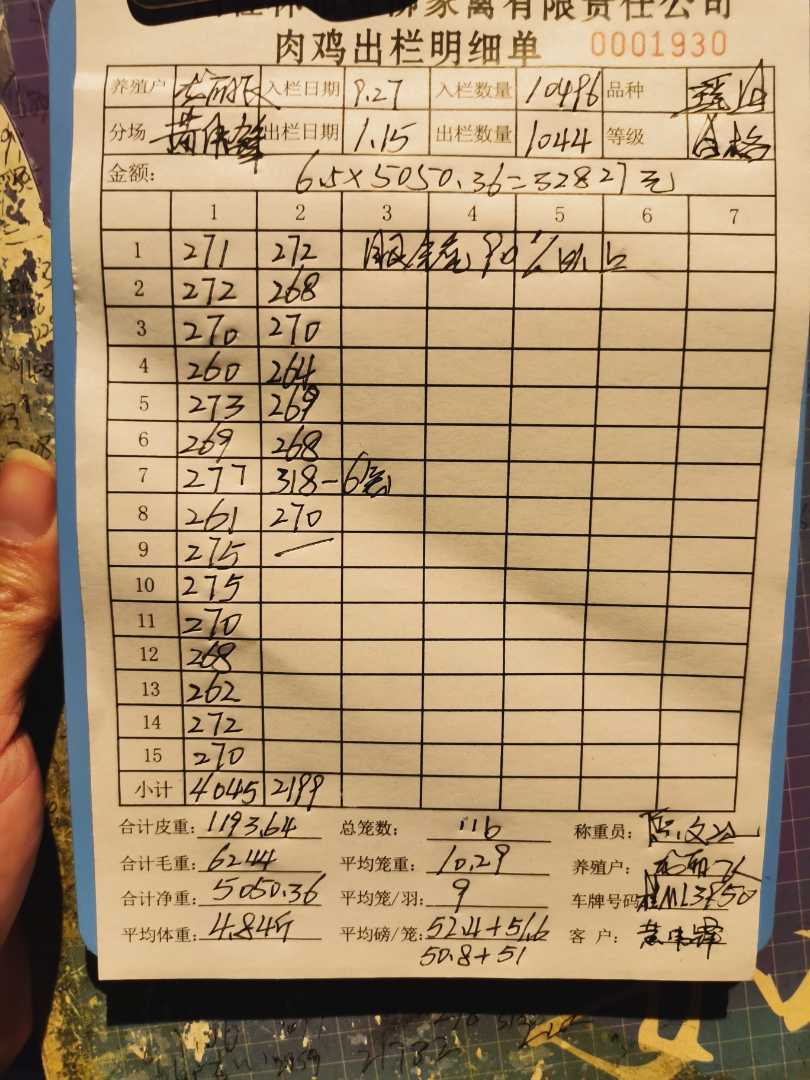 家禽有限责任公司
肉鸡出栏明细单 0001930
养殖户 入栏日期 9.27 入栏数量 10496 品种
分场 黄伟锋 出栏日期 1.15 出栏数量 1044 等级 合格
金额: 6.5×5050.36=32827元
1 2 3 4 5 6 7
1 271 272 90%以上
2 272 268
3 270 270
4 260 264
5 273 269
6 269 268
7 277 318-6笼
8 261 270
9 275 —
10 275
11 270
12 268
13 262
14 272
15 270
小计 4045 2199
合计皮重: 1193.64 总笼数: 116 称重员:
合计毛重: 6244 平均笼重: 10.29 养殖户:
合计净重: 5050.36 平均笼/羽: 9 车牌号码
平均体重: 4.84斤 平均磅/笼: 52.4+51.6 客 户:
50.8+51